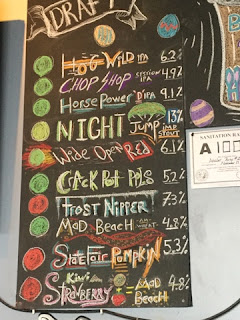 DRAFT
HOG WILD IPA 6.2
CHOP SHOP SESSION IPA 4.9%
HORSE POWER DIPA 9.1%
NIGHT JUMP IMP STOUT 13%
WIDE OPEN RED 6.1%
CRACK POT PALS 5.2%
FROST NIPPER! 7.3%
MAD BEACH AM. WHEAT 4.8%
STATE FAIR PUMPKIN 5.3%
KIWI STRAWBERRY MAD BEACH 4.8%
SANITATION
A 100